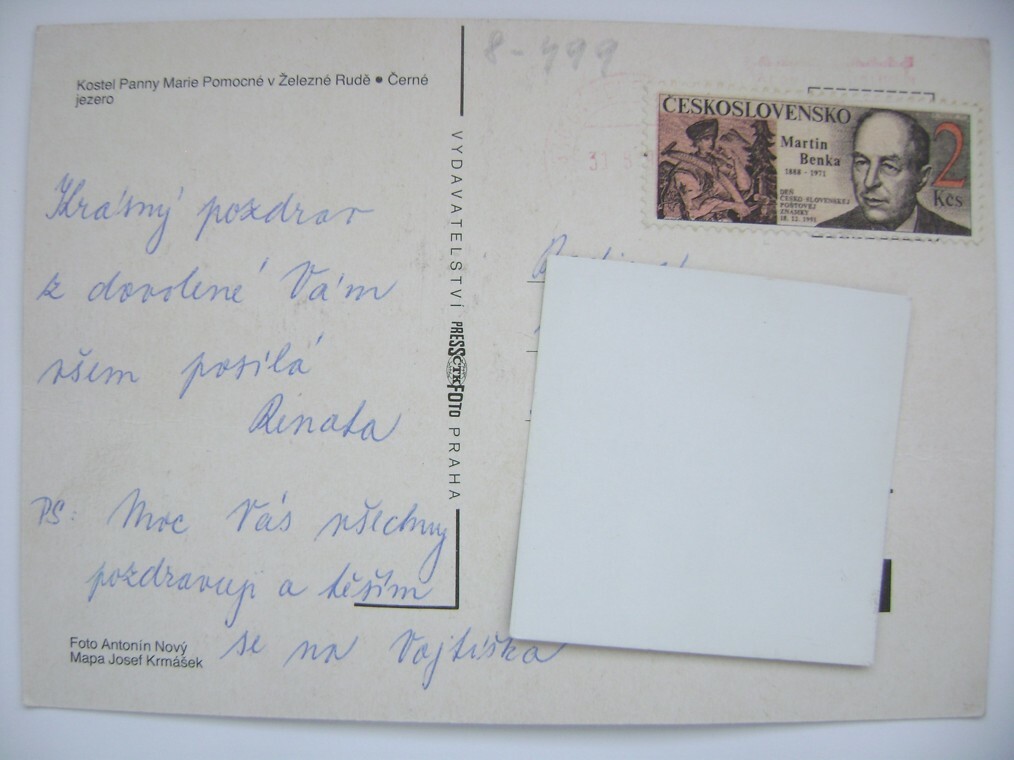 8-499
Kostel Panny Marie Pomocné v Železné Rudě • Černé
jezero
ČESKOSLOVENSKO
Martin
Benka
1888 - 1971
2
Kčs
DEŇ
ČESKO-SLOVENSKEJ
POŠTOVEJ
ZNÁMKY
18. 12. 1991
31 5
VYDAVATELSTVÍ PRESSFOTO PRAHA
ČTK
Krásný pozdrav
z dovolené Vám
všem posílá
Renata
PS: Moc Vás všechny
pozdravuji a těším
se na Vojtíška
Foto Antonín Nový
Mapa Josef Krmášek